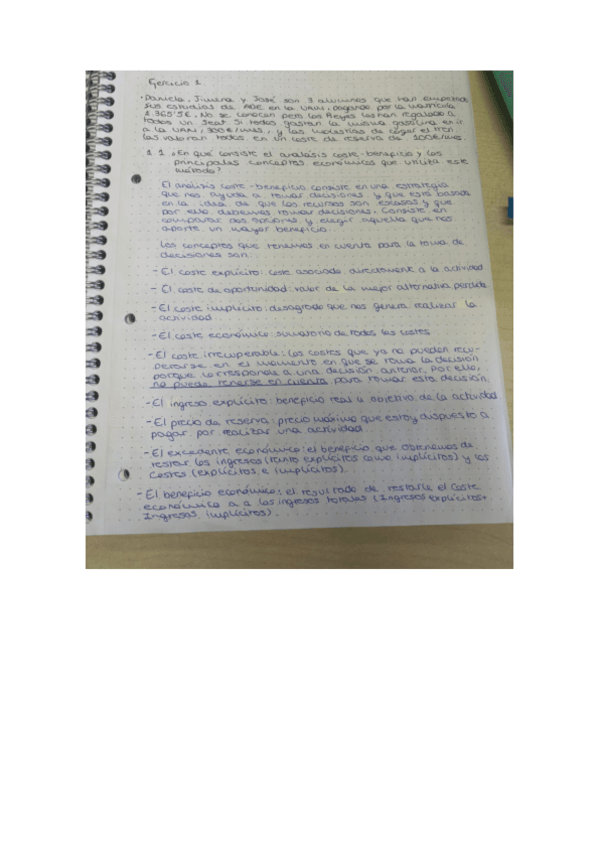 Ejercicio 1.
· Daniela, Jimena y José son 3 alumnos que han empezado
sus estudios de ADE en la UAM, pagando por la matrícula
1.365'5€. No se conocen pero los Reyes les han regalado a
todos un Seat. Si todos gastan la misma gasolina en ir
a la UAM, 300€/mes, y las molestias de coger el tren
las valoran todos en un coste de reserva de 100€/mes.
1.1 ¿En qué consiste el análisis coste-beneficio y los
principales conceptos económicos que utiliza este
método?
El análisis coste-beneficio consiste en una estrategia
que nos ayuda a tomar decisiones y que está basada
en la idea de que los recursos son escasos y que
por ello debemos tomar decisiones. Consiste en
comparar dos opciones y elegir aquella que nos
aporte un mayor beneficio.
Los conceptos que tenemos en cuenta para la toma de
decisiones son:
- El coste explícito: coste asociado directamente a la actividad
- El coste de oportunidad: valor de la mejor alternativa perdida
- El coste implícito: desagrado que nos genera realizar la
actividad
- El coste económico: sumatorio de todos los costes
- El coste irrecuperable: los costes que ya no pueden recu-
perarse en el momento en que se toma la decisión
porque corresponde a una decisión anterior. Por ello,
no puede tenerse en cuenta para tomar esta decisión.
- El ingreso explícito: beneficio real u objetivo de la actividad
- El precio de reserva: precio máximo que estoy dispuesto a
pagar por realizar una actividad
- El excedente económico: el beneficio que obtenemos de
restar los ingresos (tanto explícitos como implícitos) y los
costes (explícitos e implícitos).
- El beneficio económico: el resultado de restarle el coste
económico a a los ingresos totales (Ingresos explícitos+
Ingresos implícitos).